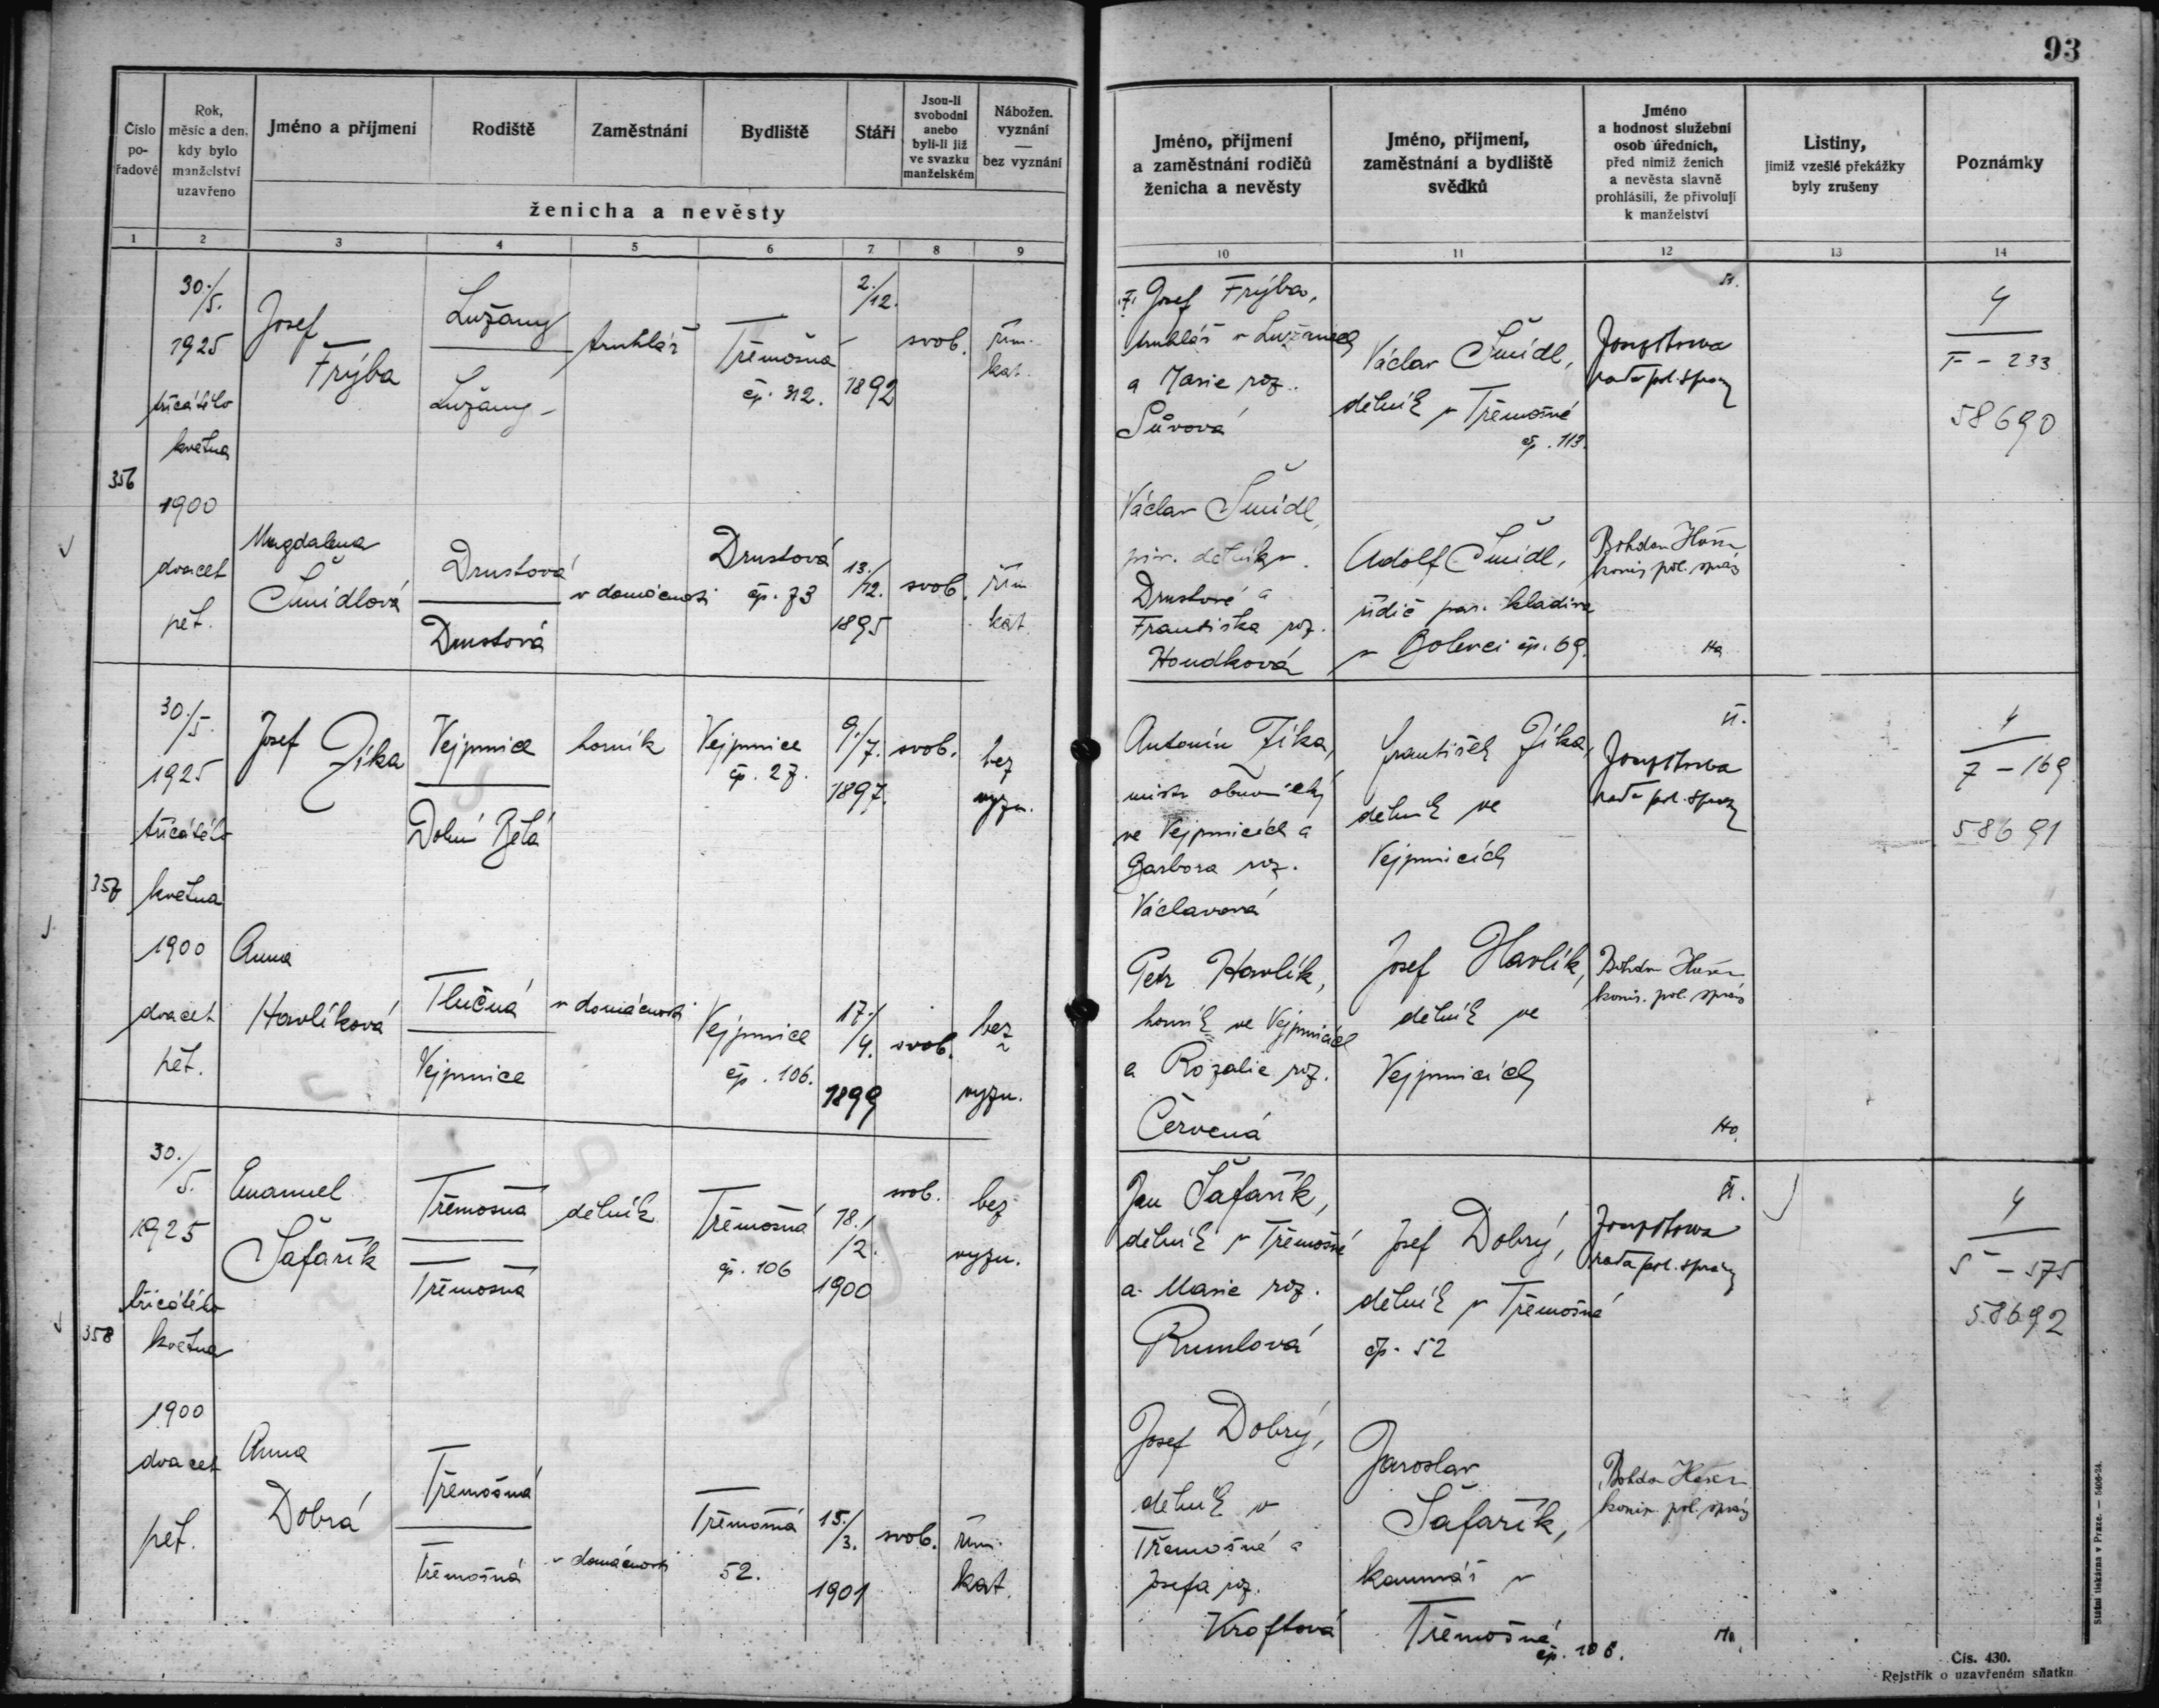 93
Číslo
po-
řadové
Rok,
měsíc a den,
kdy bylo
manželství
uzavřeno
Jméno a příjmení
Rodiště
Zaměstnání
Bydliště
Stáří
Jsou-li
svobodni
anebo
byli-li již
ve svazku
manželském
Nábožen.
vyznání
—
bez vyznání
ženicha a nevěsty
Jméno, příjmení
a zaměstnání rodičů
ženicha a nevěsty
Jméno, příjmení,
zaměstnání a bydliště
svědků
Jméno
a hodnost služební
osob úředních,
před nimiž ženich
a nevěsta slavně
prohlásili, že přivolují
k manželství
Listiny,
jimiž vzešlé překážky
byly zrušeny
Poznámky
1 2 3 4 5 6 7 8 9 10 11 12 13 14
356
30./5.
1925
třicátého
května
1900
dvacet
pět.
Josef
Frýba
Lužany
Lužany
truhlář
Třemošná
čp. 312.
2./12.
1892
svob.
řím.
kat.
Josef Frýba,
truhlář v Lužanech
a Marie roz.
Sůvová
Václav Šmídl,
dělník v Třemošné
čp. 113.
rada pol. správy
4
F - 233
58690
Magdalena
Šmídlová
Drustová
Drustová
v domácnosti
Drustová
čp. 73
13./12.
1895
svob.
řím.
kat.
Václav Šmídl,
dělník v
Drustové a
Františka roz.
Houdková
Adolf Šmídl,
řidič par. kladiva
v Bolevci čp. 69.
Bohdan
komis. pol. správy
357
30./5.
1925
třicátého
května
1900
dvacet
pět.
Josef Zíka
Vejprnice
Dolní Bělá
horník
Vejprnice
čp. 27.
9./7.
1897.
svob.
bez
vyzn.
Antonín Zíka,
mistr obuvnický
ve Vejprnicích a
Barbora roz.
Václavová
František Zíka,
dělník ve
Vejprnicích
rada pol. správy
4
7 - 169
58691
Anna
Havlíková
Tlučná
Vejprnice
v domácnosti
Vejprnice
čp. 106.
17./4.
1899
svob.
bez
vyzn.
Petr Havlík,
horník ve Vejprnicích
a Rozalie roz.
Červená
Josef Havlík,
dělník ve
Vejprnicích
Bohdan
komis. pol. správy
358
30./5.
1925
třicátého
května
1900
dvacet
pět.
Emanuel
Šafařík
Třemošná
Třemošná
dělník
Třemošná
čp. 106
18./2.
1900
svob.
bez
vyzn.
Jan Šafařík,
dělník v Třemošné
a Marie roz.
Rumlová
Josef Dobrý,
dělník v Třemošné
čp. 52
rada pol. správy
4
5 - 575
58692
Anna
Dobrá
Třemošná
Třemošná
v domácnosti
Třemošná
52.
15./3.
1901
svob.
řím.
kat.
Josef Dobrý,
dělník v
Třemošné a
Josefa roz.
Kroftová
Jaroslav
Šafařík,
kamnář v
Třemošné
čp. 106.
Bohdan
komis. pol. správy
Státní tiskárna v Praze. — 5406-24.
Čís. 430.
Rejstřík o uzavřeném sňatku